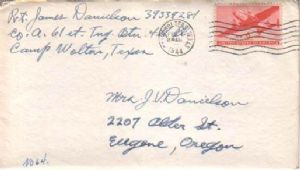 Pvt. James Danielson 39339284
Co. A. 61 st. Tng. Btn.
Camp Wolters, Texas
1944
Mrs J. V. Danielson
2207 Alder St.
Eugene, Oregon